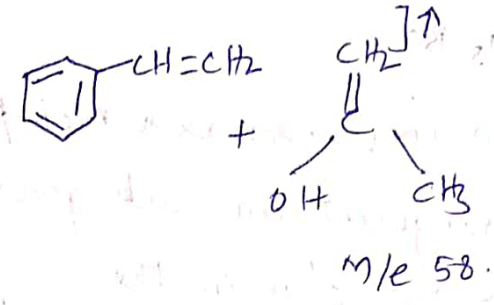 CH=CH2
CH2]↑
+
C
OH CH3
m/e 58.